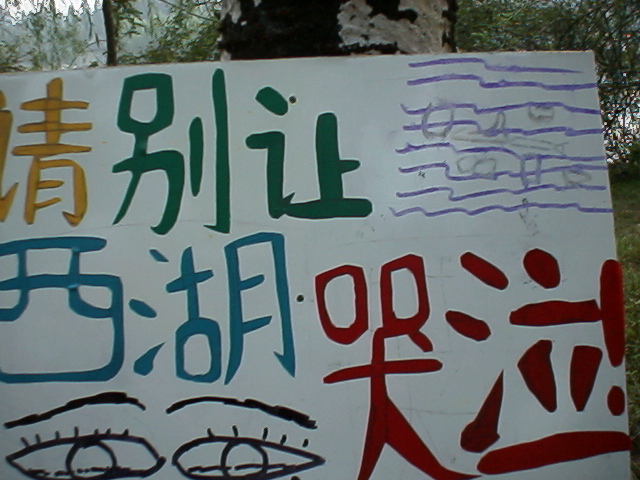 请别让
西湖哭泣!